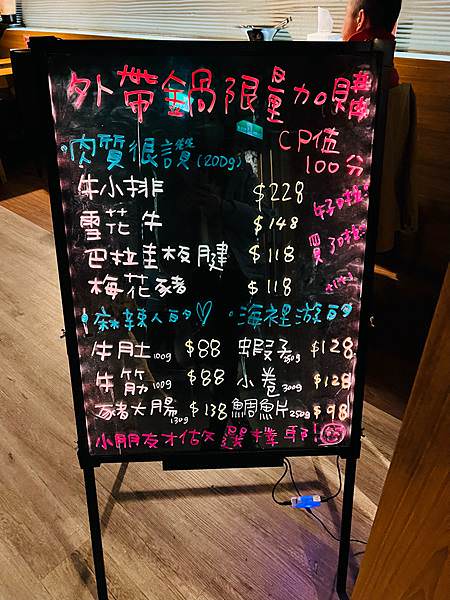 外帶鍋限量加購
CP值
100分
肉質很讚(200g)
牛小排 $228
雪花牛 $148
巴拉圭板腱 $118
梅花豬 $118
好啦
買了啦
麻辣人的♡
海裡游的
牛肚100g $88
蝦子250g $128
牛筋100g $88
小卷300g $128
豬大腸130g $138
鯛魚片250g $98
小朋友才做選擇耶!